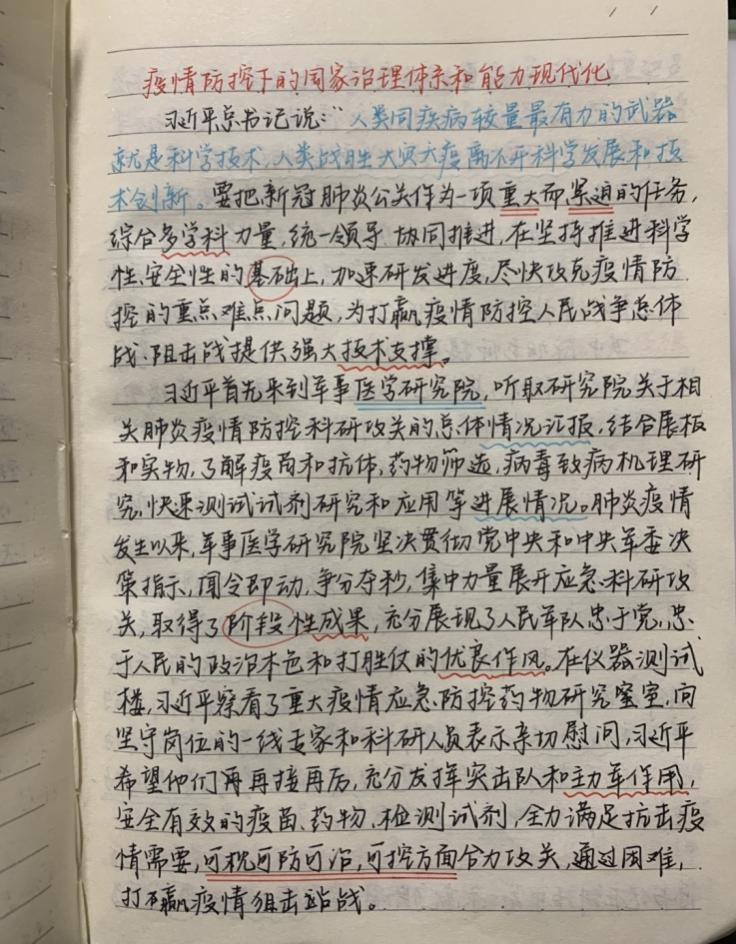 疫情防控下的国家治理体系和能力现代化
习近平总书记说：“人类同疾病较量最有力的武器
就是科学技术，人类战胜大灾大疫离不开科学发展和技
术创新。要把新冠肺炎公关作为一项重大而紧迫的任务，
综合多学科力量，统一领导 协同推进，在坚持推进科学
性、安全性的基础上，加速研发进度，尽快攻克疫情防
控的重点、难点问题，为打赢疫情防控人民战争总体
战、阻击战提供强大技术支撑。
习近平首先来到军事医学研究院，听取研究院关于相
关肺炎疫情防控科研攻关的总体情况汇报，结合展板
和实物，了解疫苗和抗体，药物筛选，病毒致病机理研
究，快速测试试剂研究和应用等进展情况。肺炎疫情
发生以来，军事医学研究院坚决贯彻党中央和中央军委决
策指示，闻令即动，争分夺秒，集中力量展开应急科研攻
关，取得了阶段性成果，充分展现了人民军队忠于党，忠
于人民的政治本色和打胜仗的优良作风。在仪器测试
楼，习近平察看了重大疫情应急防控药物研究室，向
坚守岗位的一线专家和科研人员表示亲切慰问，习近平
希望他们再再接再后，充分发挥突击队和主力军作用，
安全有效的疫苗、药物、检测试剂，全力满足抗击疫
情需要，可视可防可治，可控方面合力攻关，通过困难，
打赢疫情狙击战。